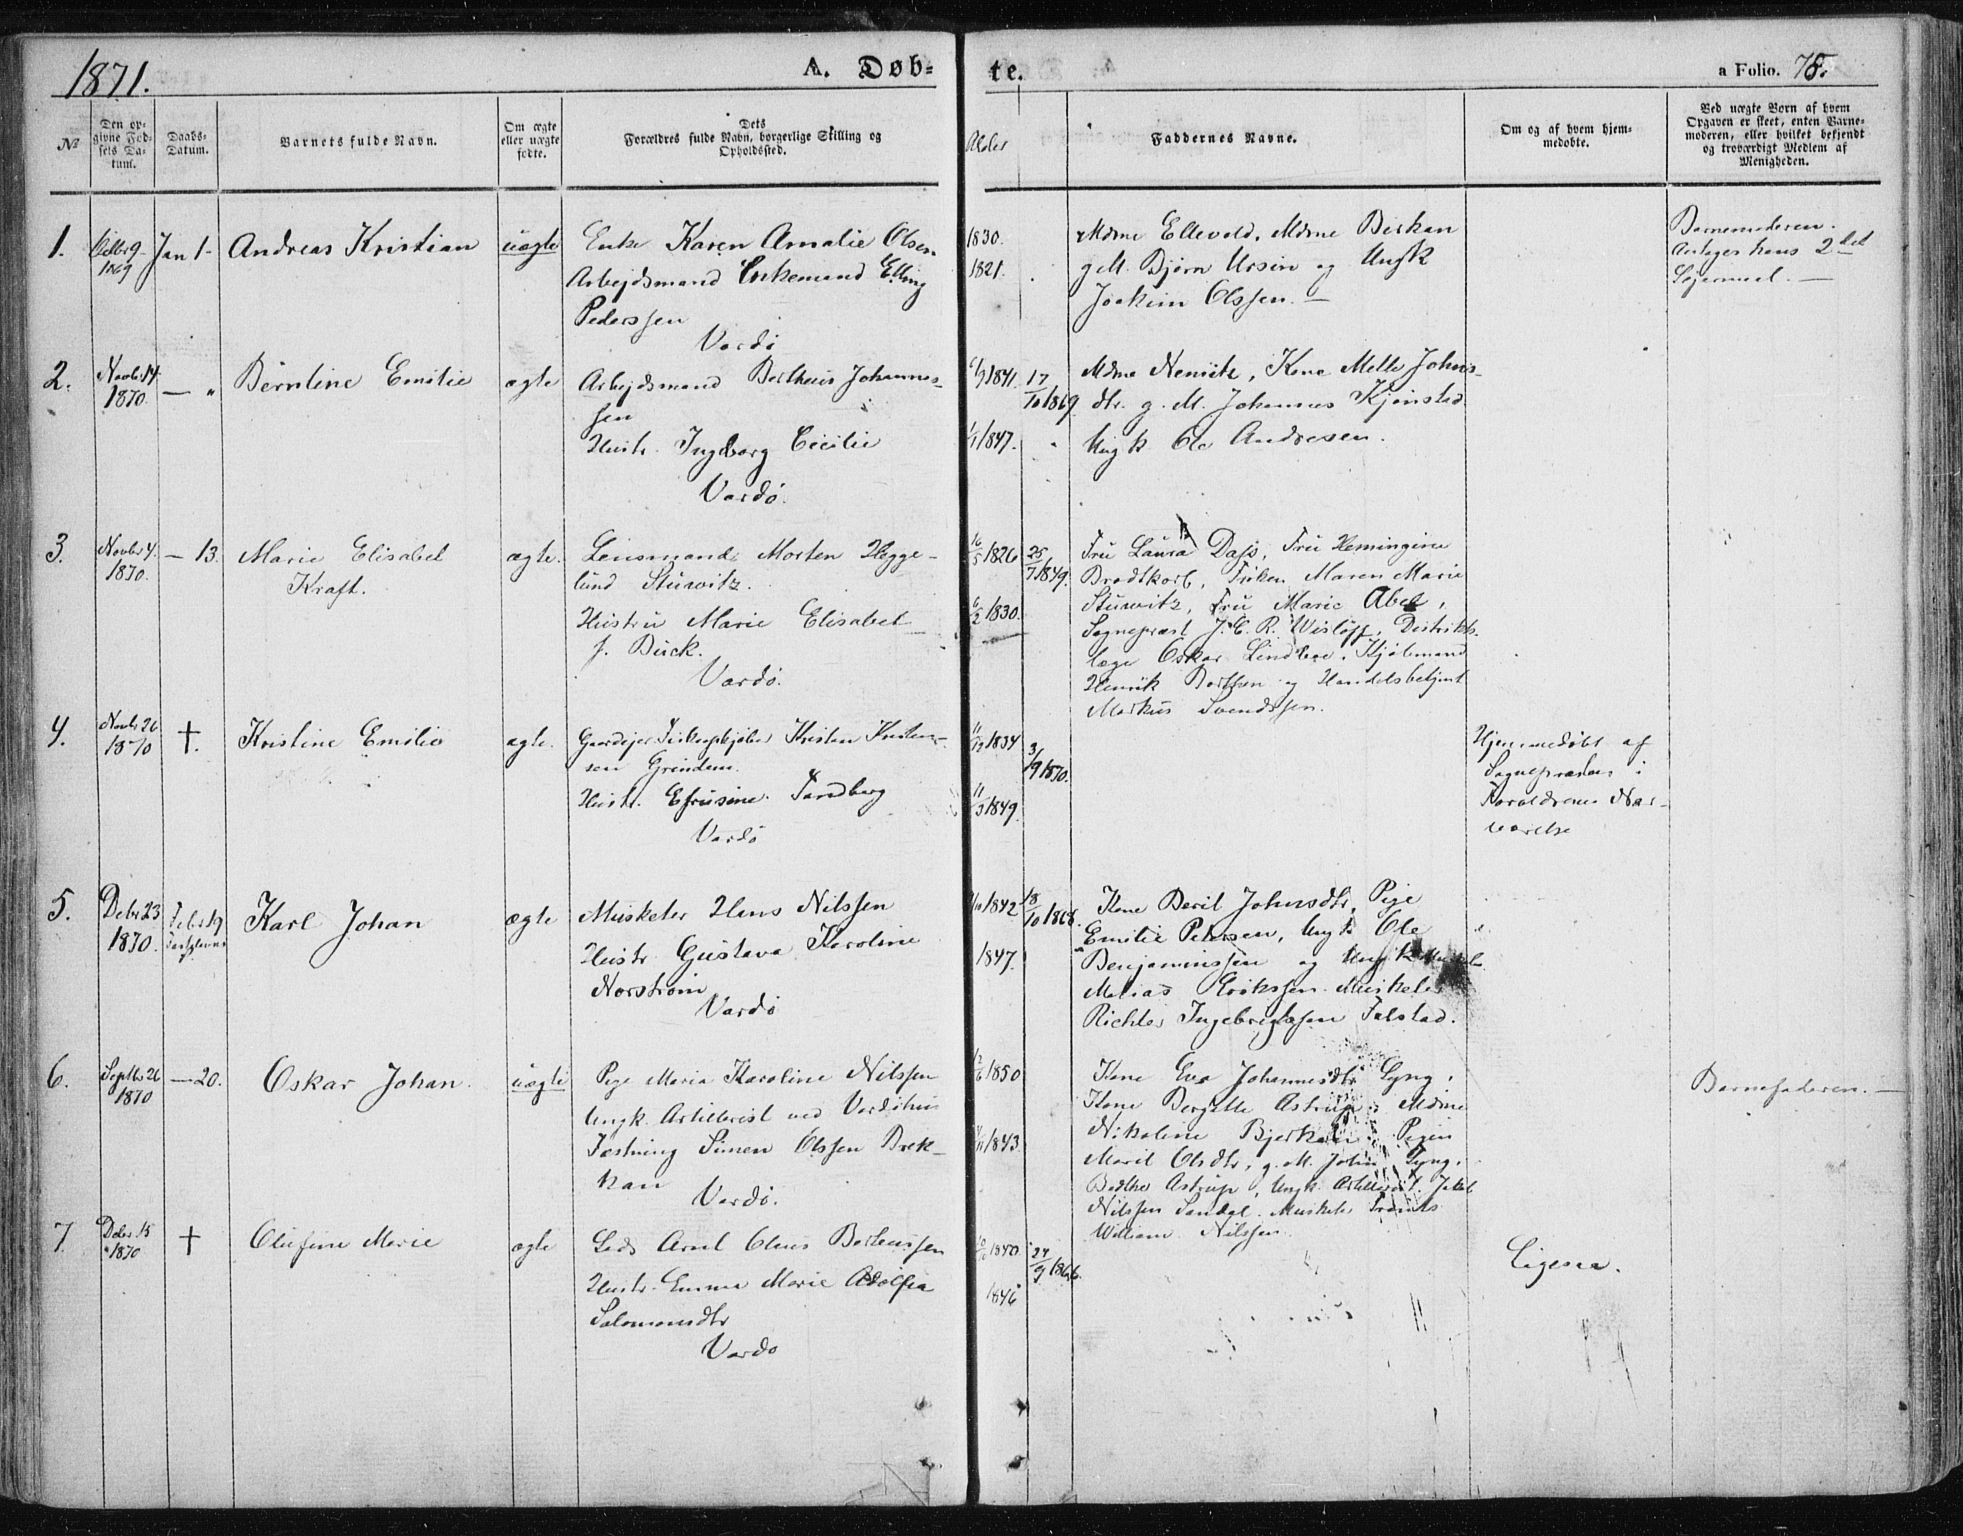 1871.
A. Døb-
te.
a Folio. 78.
№
Den op-
givne Fød-
sels Da-
tum.
Daabs-
Datum.
Barnets fulde Navn.
Om ægte
eller uægte
fødte.
Dets
Forældres fulde Navn, borgerlige Stilling og
Opholdssted.
Alder
Faddernes Navne.
Om og af hvem hjem-
medøbte.
Ved uægte Børn af hvem
Opgaven er skeet, enten Barne-
moderen, eller hvilket bekjendt
og troværdigt Medlem af
Menigheden.
1.
1869
Jan 1.
Andreas Kristian
uægte
Enke Karen Amalie Olsen.
Arbejdsmand Enkemand Elling
Pederssen
Vardö
1830.
1821.
Mdme Ellevold, Mdme Birkan
g. M. Bjørn Ursin og Ungk
Joakim Olssen. —
Barnemoderen.
Antages hans 2det
Lejermaal. —
2.
Novbr 14
1870.
— "
Berntine Emilie
ægte
Arbejdsmand Bertheus Johannes-
sen
Hustr. Ingeborg Cecilie
Vardö.
1841.
17/10 1869
1847.
Mdme Kone Mette Johns-
dtr. g. M. Johannes Kjønstad
Ungk. Ole Andresen.
3.
Novbr 4.
1870.
— 13.
Marie Elisabet
Kraft.
ægte.
Lensmand Morten Hegge-
lund Stuwitz.
Hustru Marie Elisabet
f. Buck.
Vardö.
16/5 1826
25/7 1849.
6/2 1830.
Fru Laura Dass, Fru Hemingine
Brodtkorb, Frøken Maren Marie
Stuwitz, Fru Marie Abel,
Sognepræst J. C. R. Wisløff, Distrikts-
læge Oskar Kjøbmand
Henrik og Handelsbetjent
Markus Svendssen.
4.
Novbr 26
1870
†.
Kristine Emilie
ægte.
Gaardejer Kristen Kristen-
sen Grindem.
Hustr. Efrusine Sandberg
Vardö
11/12 1834
3/9 1870.
11/3 1849.
Hjemmedøbt af
Sognepræsten i
Forældrenes Nær-
værelse
5.
Debr 23
1870.
Febr 19
Karl Johan
ægte
Musketer Hans Nilssen
Hustr. Gustava Karoline
Norström
Vardö
1842
18/10 1868.
1847.
Kone Berit Johnsdtr, Pige
Emilie Petersen, Ungk Ole
Benjaminssen og Ungk
Matias Erikssen Musketer
Richter Ingebrigtssen Falstad.
6.
Septbr 26
1870
— 20.
Oskar Johan.
uægte
Pige Maria Karoline Nilssen
Ungk. Artillerist ved Vardöhus
Fæstning Simen Olssen Brek-
kan
Vardö.
1850
1843
Kone Eva Johannesdtr Lyng,
Kone Bergitte Astrup, Mdme
Nikoline Bjerkan, Pigen
Marit Olsdtr, g. M. John Lyng,
Astrup, Ungk. Artillerist
Nilssen Musketer
William Nilssen
Barnefaderen. —
7
Debr 15
1870
†
Olufine Marie
ægte
Arnt Claus
Hustr. Emma Marie Adolfia
Salomonsdtr
Vardö
1840
24/9 1866.
1846
Ligesaa.